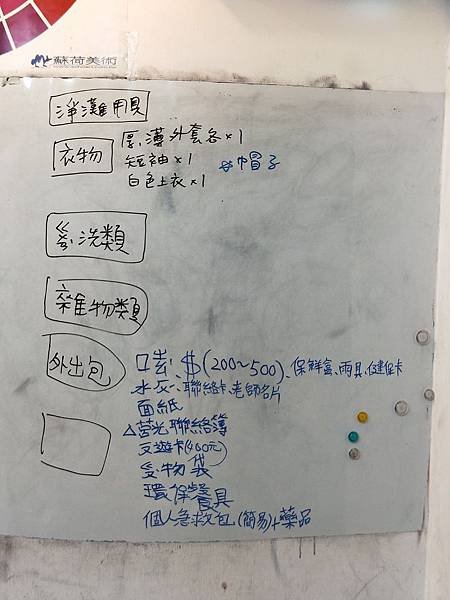 蘇荷美術
淨灘用具
衣物 厚、薄外套各×1
短袖×1 #帽子
白色上衣×1
盥洗類
雜物類
外出包 口袋 $(200~500)、保鮮盒、雨具、健保卡
水、聯絡卡、老師名片
面紙
△營光聯絡簿
交遊卡(400元)
物袋
環保餐具
個人急救包(簡易)+藥品